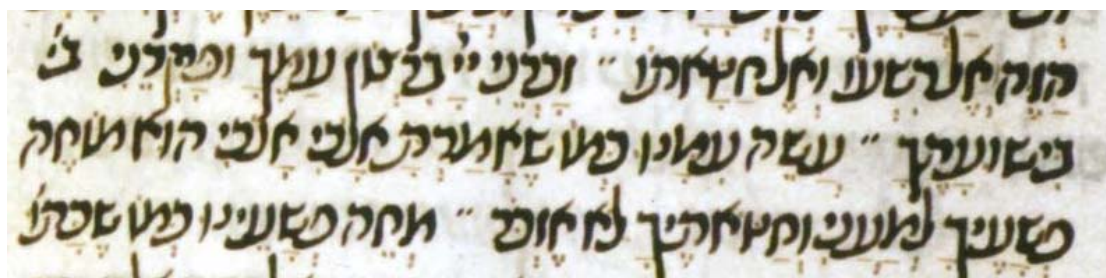 הזה אל רשעו ואל חטאתו ״ זכרני יי ברצון עמך ופקדני ב
בישועתך ״ עשה עמנו כמו שאמרת אנכי אנכי הוא מוחה
פשעיך למעני וחטאתיך לא אזכר ״ מחה פשעינו כמו שכתו